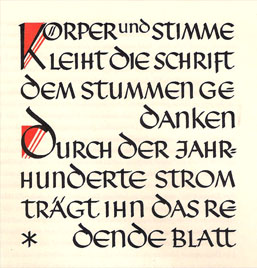 KÖRPER und STIMME
LEIHT DIE SCHRIFT
DEM STUMMEN GE
DANKEN
DURCH DER JAHR-
HUNDERTE STROM
TRÄGT IHN DAS RE
* DENDE BLATT